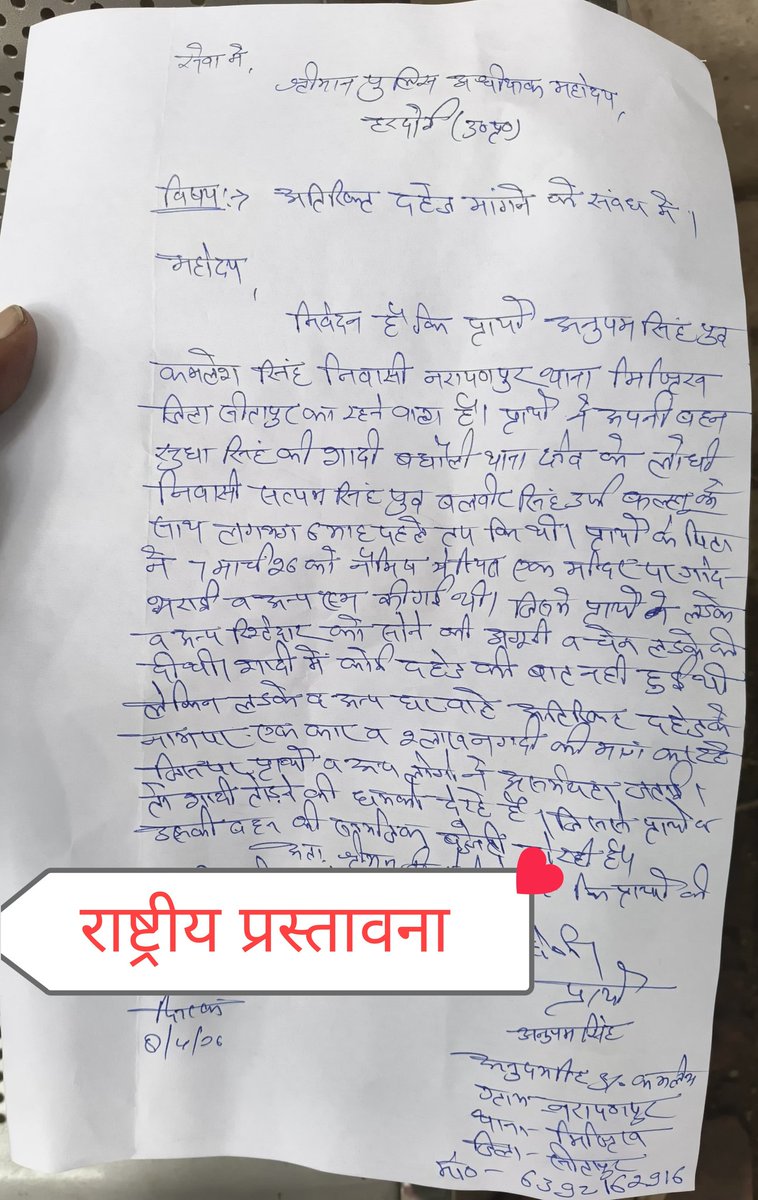 सेवा में,
श्रीमान पुलिस अधीक्षक महोदय,
हरदोई (उ०प्र०)
विषय:→ अतिरिक्त दहेज मांगने के संबंध में।
महोदय,
निवेदन है कि प्रार्थी अनुपम सिंह पुत्र
कमलेश सिंह निवासी नरायणपुर थाना मिश्रिख
जिला सीतापुर का रहने वाला है। प्रार्थी ने अपनी बहन
सुधा सिंह की शादी बघौली थाना क्षेत्र के लोधी
निवासी सत्यम सिंह पुत्र बलवीर सिंह उर्फ कल्लू के
साथ लगभग 6 माह पहले तय कि थी। प्रार्थी के पिता
ने 7 मार्च 26 को नैमिष में स्थित एक मंदिर पर गोद-
भराई व अन्य रस्म की गई थी। जिसमें प्रार्थी ने लडके
व अन्य रिश्तेदार को सोने की अंगूठी व चैन लडके को
दी थी। शादी में कोई दहेज की बात नही हुई थी
लेकिन लडके व अन्य घर वाले अतिरिक्त दहेज के
नाम पर एक कार व लाख नगदी की मांग कर रहे
जिस पर प्रार्थी व अन्य लोगों ने असमर्थता जताई।
तो शादी तोड़ने की धमकी दे रहे हैं। जिससे प्रार्थी व
उसकी बहन की हो रही है।
अतः श्रीमान जी कि प्रार्थी की
राष्ट्रीय प्रस्तावना
प्रार्थी
दिनांक
8/4/26
अनुपम सिंह
अनुपम सिंह S/o कमलेश
ग्राम नरायणपुर
थाना- मिश्रिख
जिला- सीतापुर
मो०- 6392162916